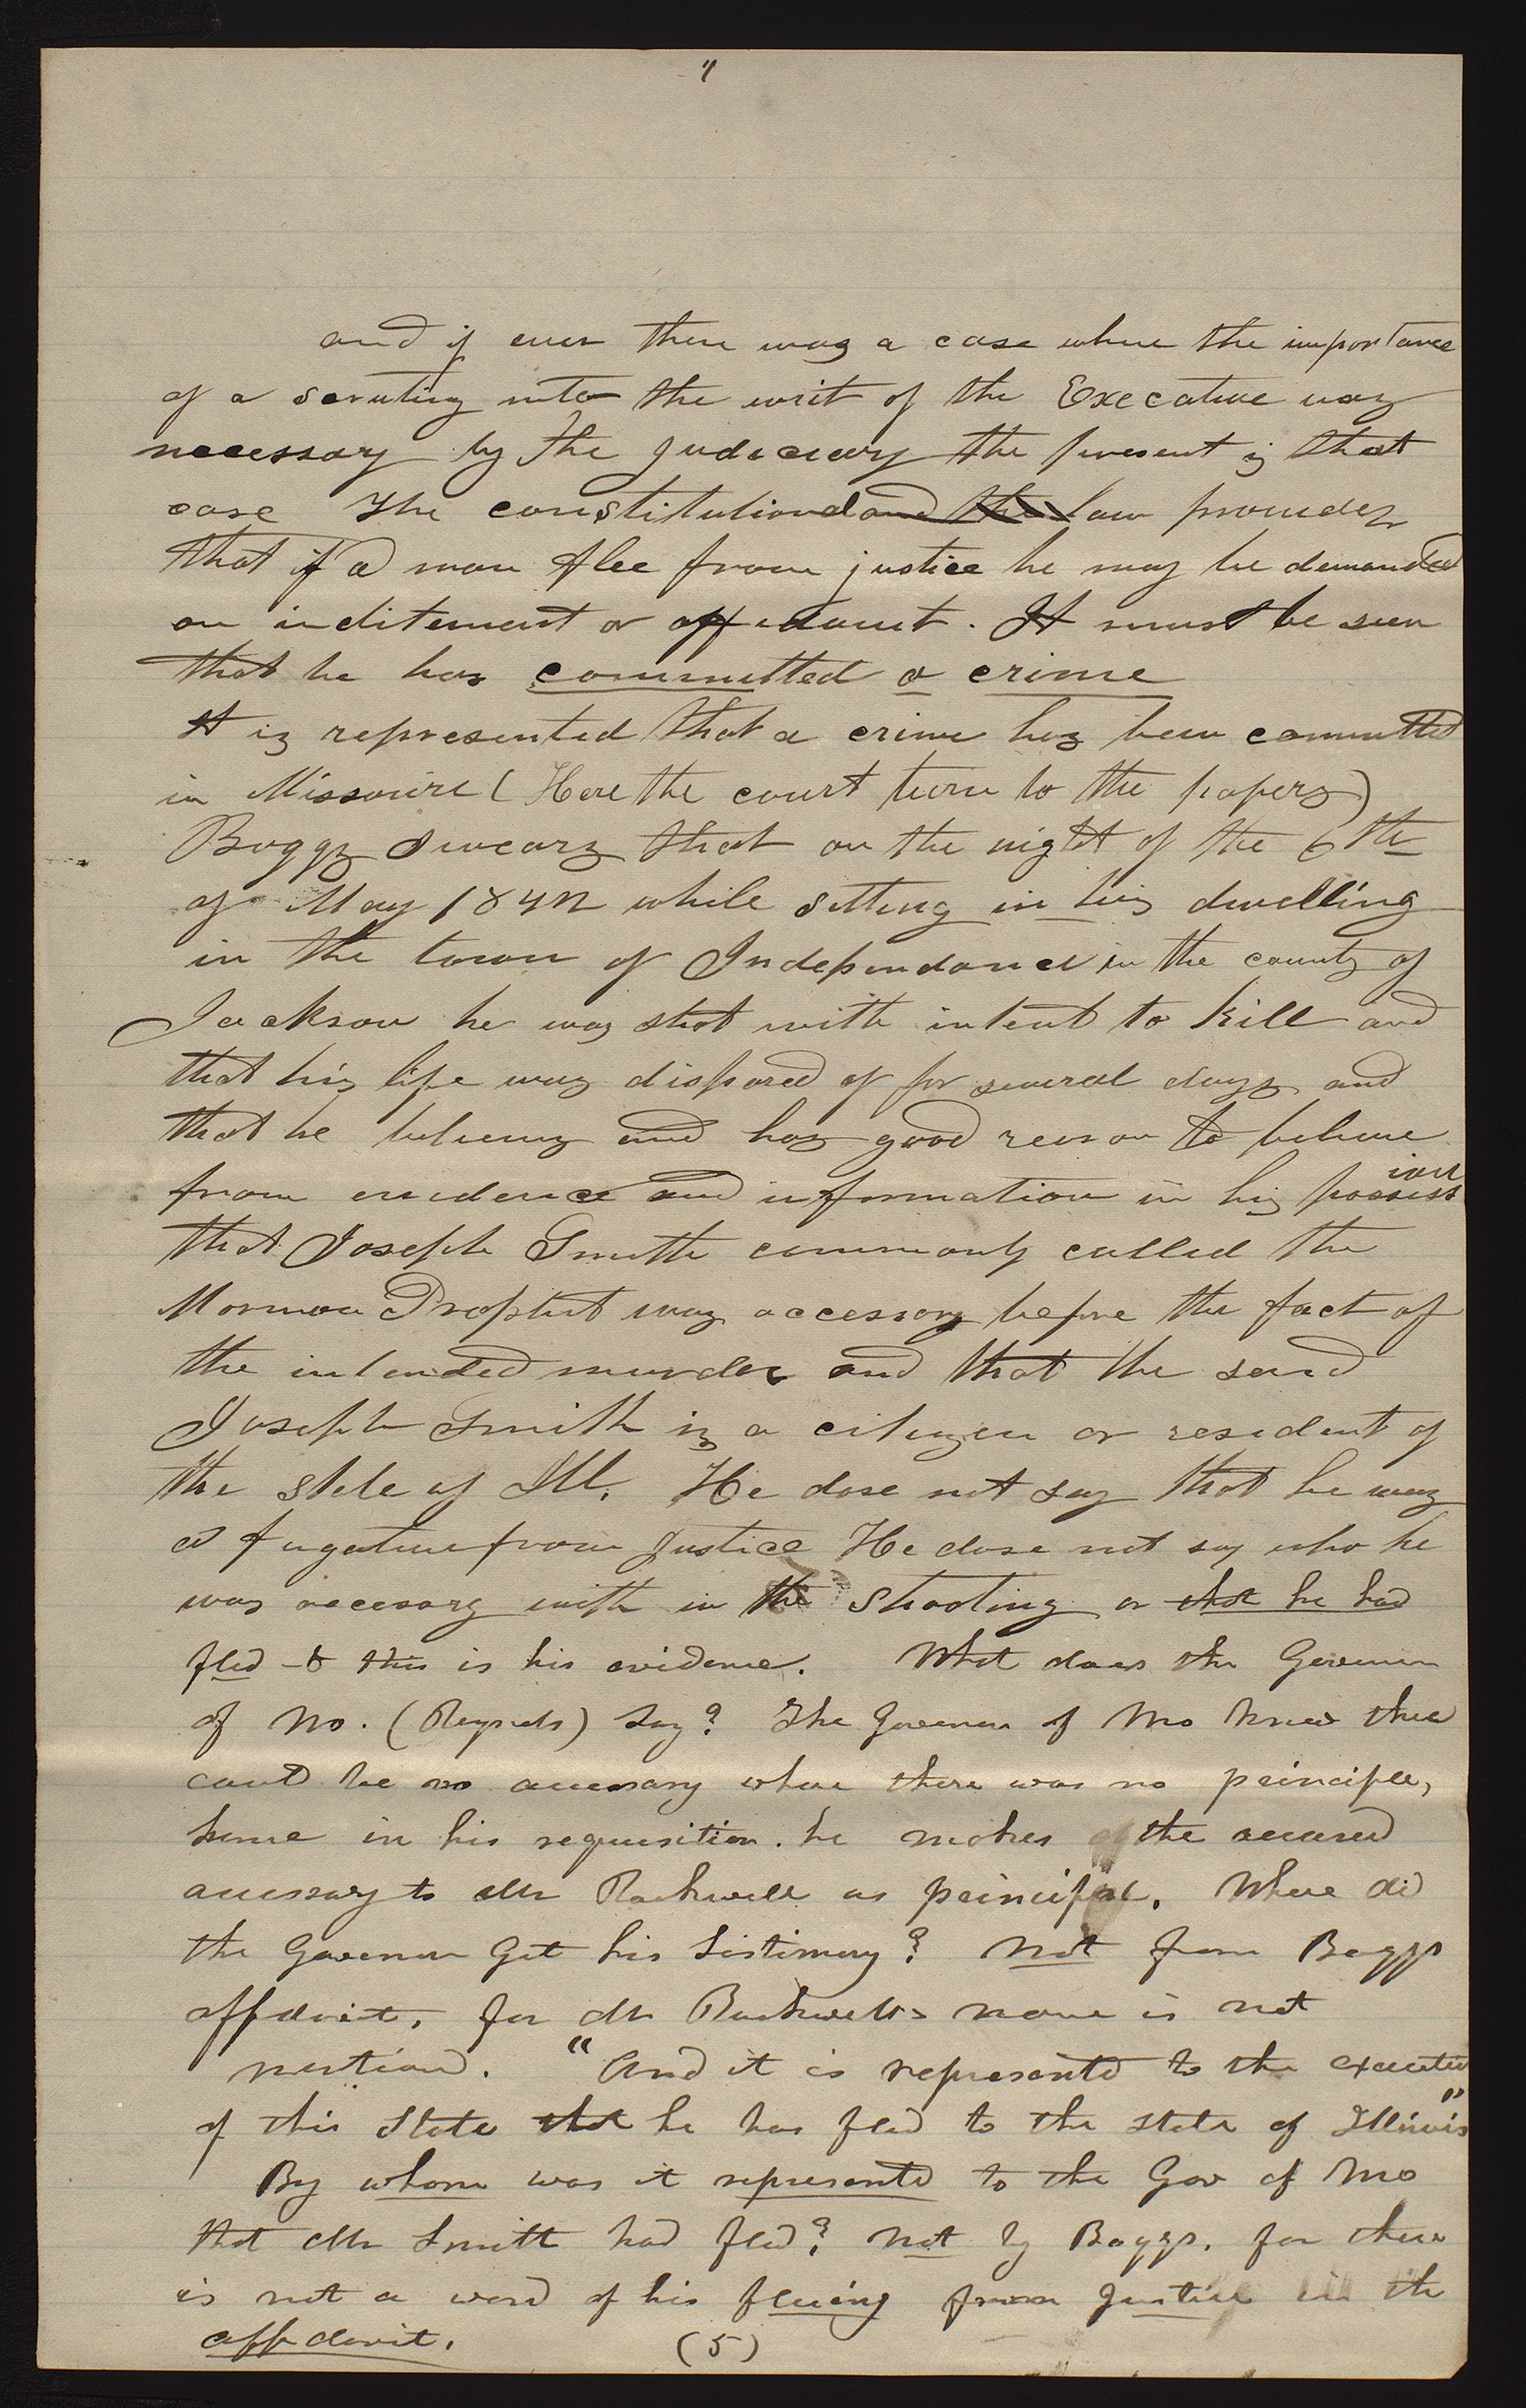 "
and if ever there was a case where the importance
of a scrutiny into the writ of the Executive was
necessary by the judiciary the present is that
case The constitution and the law provides
that if a man flee from justice he may be demanded
on inditement or affidavit. It must be seen
that he has committed a crime
It is represented that a crime has been committed
in Missouri (Here the court turn to the papers)
Boggs swears that on the night of the 6th
of May 1842 while setting in his dwelling
in the town of Independance in the county of
Jackson he was shot with intent to kill and
that his life was dispared of for several days and
that he believes and has good reason to believe
from evidence and information in his possession
that Joseph Smith commonly called the
Mormon Prophet was accessory before the fact of
the intended murder and that the said
Joseph Smith is a citizen or resident of
the state of Ill. He dose not say that he was
a fugative from justice He dose not say who he
was accesory with in the shooting or that he had
fled & this is his evidence. What does the Governor
of Mo. (Reynolds) say? The Governor of Mo knew there
could be no accessary where there was no principle,
hence in his requisition. he makes the accused
accessary to Mr Rockwell as principal. Where did
the Govenor Get his testimony? Not from Boggs
affidavit, for Mr Rockwells name is not
mentiond. "And it is represented to the executive
of this State that he has fled to the state of Illinois"
By whom was it represented to the Gov of Mo
that Mr Smith had fled? Not by Boggs. for there
is not a word of his fleeing from Justice in the
affidavit. (5)